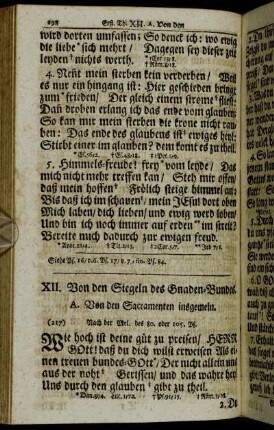 198 Erst. Th. XII. A. Von den
wird dorten umfassen: So denck ich: wo ewig
die liebe sich mehrt / Dagegen sey dieser zeit
leyden nichts werth.
4. Nent mein sterben kein verderben / Weil
es nur ein hingang ist: Hier geschieden bringt
zum frieden / Der gleich einem strome fließt
Dan droben erlang ich das ende vom glauben
So kan mir mein sterben die krone nicht rau-
ben: Das ende des glaubens ist ewiges hey!
Stiebt einer im glauben? dem komt es zu theil.
5. Himmels-freude! frey vom leyde / Das
mich nicht mehr treffen kan / Sieh mir offen
daß mein hoffen Frölich steige himmel an:
Bis daß ich im schauen / mein JEsu dort oben
Mich laben / dich lieben / und ewig werd loben
Und bin ich noch immer auf erden im streit?
Bereite mich dadurch zur ewigen freud.
XII. Von den Siegeln des Gnaden-Bundes.
A. Von den Sacramenten insgemein.
(217) Nach der Mel. des 80. oder 105. Ps.
Wie hoch ist deine güt zu preisen / HERR
GOtt! daß du dich wilst erweisen Als ei-
nen treuen bundes-GOtt / Der nicht allein uns
aus der noht Gerissen / und das wahre hey
Uns durch den glauben gibt zu theil.